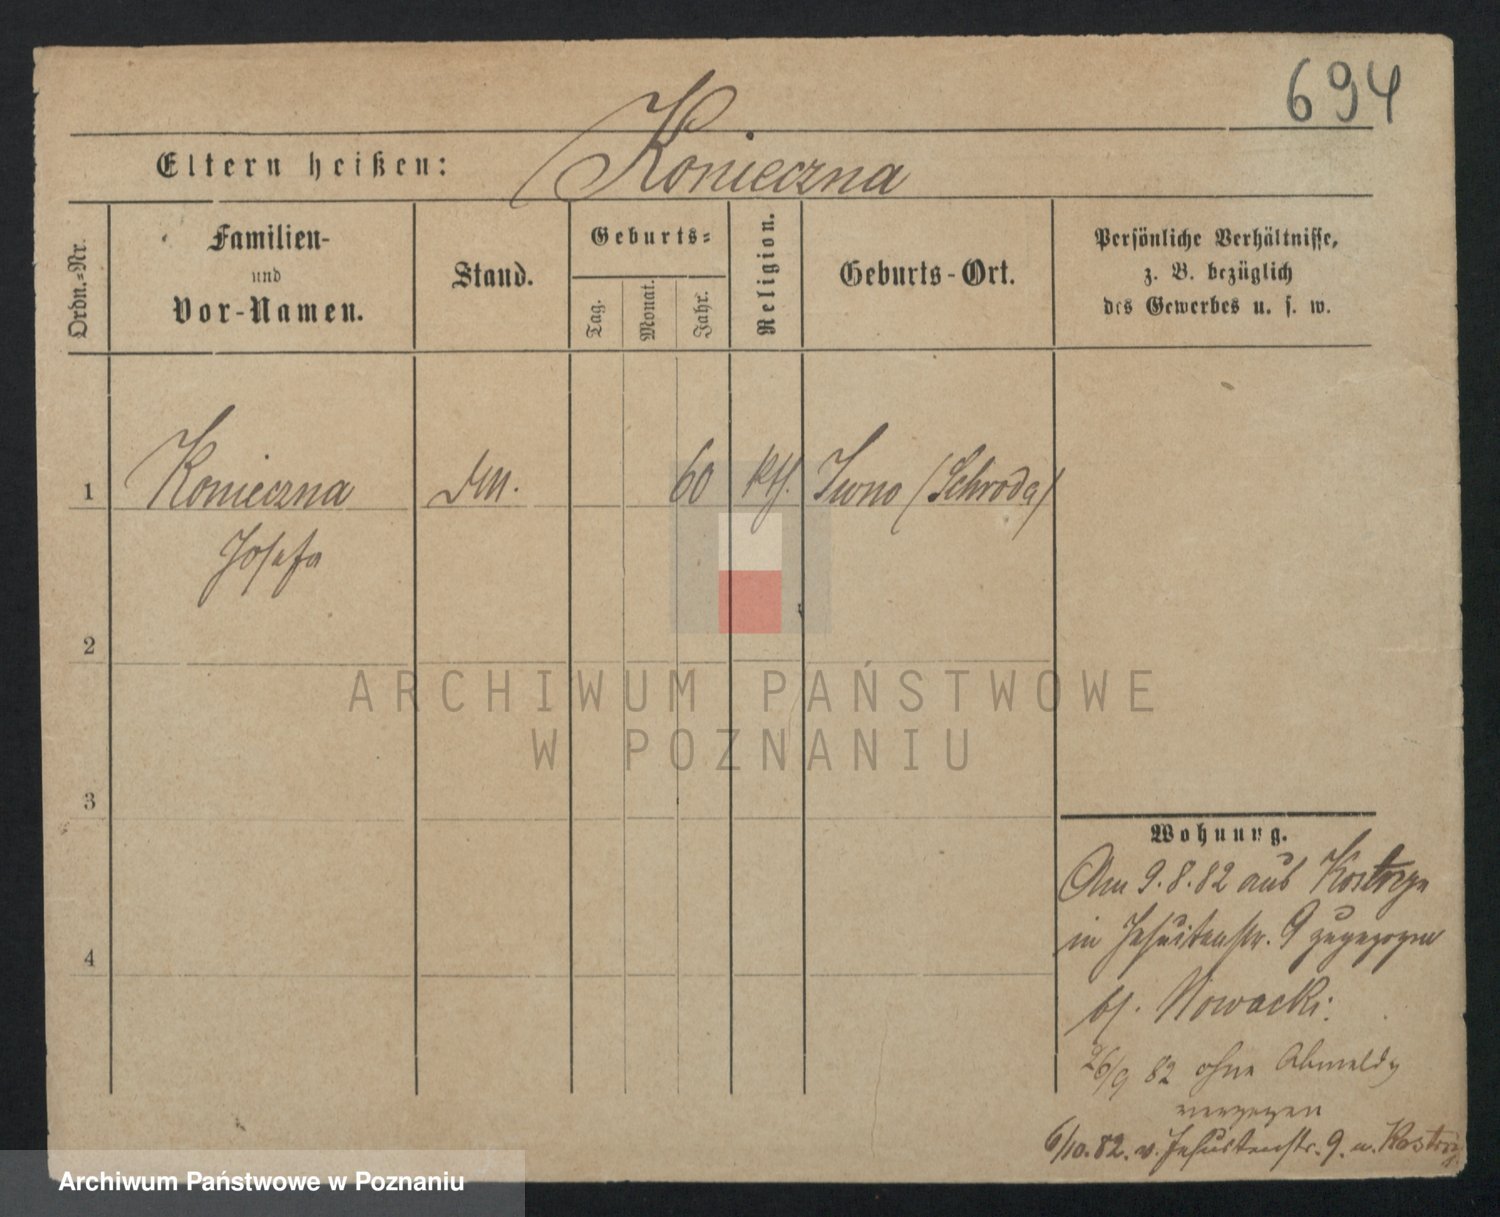 694
Eltern heißen: Konieczna
Ordn.-Nr.
Familien-
und
Vor-Namen.
Stand.
Geburts-
Tag.
Monat.
Jahr.
Religion.
Geburts-Ort.
Persönliche Verhältnisse,
z. B. bezüglich
des Gewerbes u. s. w.
1 Konieczna 60 kth. Iwno (Schroda)
Josefa
2
3
4
Wohnung.
Am 9.8.82 aus Kostrzyn
in Jesuitenstr. 9 zugezogen
bei Nowacki
26/9 82 ohne Abmeldg
verzogen
6/10.82. v. Jesuitenstr. 9. n.
ARCHIWUM PAŃSTWOWE
W POZNANIU
Archiwum Państwowe w Poznaniu